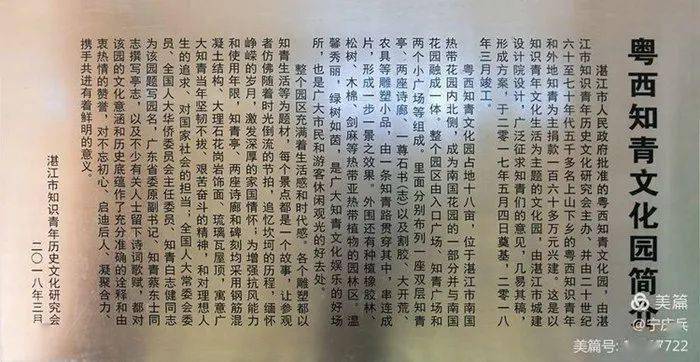 粤西知青文化园简介
湛江市人民政府批准的粤西知青文化园，由湛
江市知识青年历史文化研究会主办，并由二十世纪
六十至七十年代五千多名上山下乡的粤西知识青年
和外地知青为主捐款一百六十多万元兴建。这是以
知识青年文化生活为主题的文化园，由湛江市城建
设计院设计，广泛征求知青们的意见，几易其稿，
形成方案，于二零一七年五月四日奠基，二零一八
年三月竣工。
粤西知青文化园占地十八亩，位于湛江市南国
热带花园内北侧，成为南国花园的一部分并与南国
花园融成一体。整个园区由入口广场、知青广场和
两个小广场等组成。里面分别布列一座双层知青
亭、两座诗廊、一尊石书(志)以及割胶、大开荒、
农具等雕塑小品，由一条知青路贯穿其中，串连成
片，形成一步一景之效果。外围还有种植橡胶林、
松树、木棉、剑麻等热带亚热带植物的园林区。温
馨秀丽，绿树如茵，是广大知青文化娱乐的好场
所，也是广大市民和游客休闲观光的好去处。
整个园区充满着生活感和时代感。各个雕塑都以
知青生活等为题材，每个景点都是一个故事，让参观
者仿佛随着时光倒流的节拍，追忆坎坷的历程，缅怀
峥嵘的岁月，激发深厚的家国情怀；为增强抗风能力
和使用年限，知青亭、两座诗廊和碑刻均采用钢筋混
凝土结构、大理石花岗岩饰面、琉璃瓦屋顶，寓意广
大知青当年坚韧不拔、艰苦奋斗的精神，和对理想人
生的追求、对国家社会的担当；全国人大常委会委
员、全国人大华侨委员会主任委员、知青白志健同志
为该园题写园名，广东省委原副书记、知青蔡东士同
志撰写亭志，以及不少有关人士留下诗词歌赋，都对
该园的文化意涵和历史底蕴作了充分准确的诠释和由
衷热情的赞誉，对不忘初心、启迪后人、凝聚合力、
携手共进有着鲜明的意义。
湛江市知识青年历史文化研究会
二〇一八年三月
美篇
美篇号:
7722